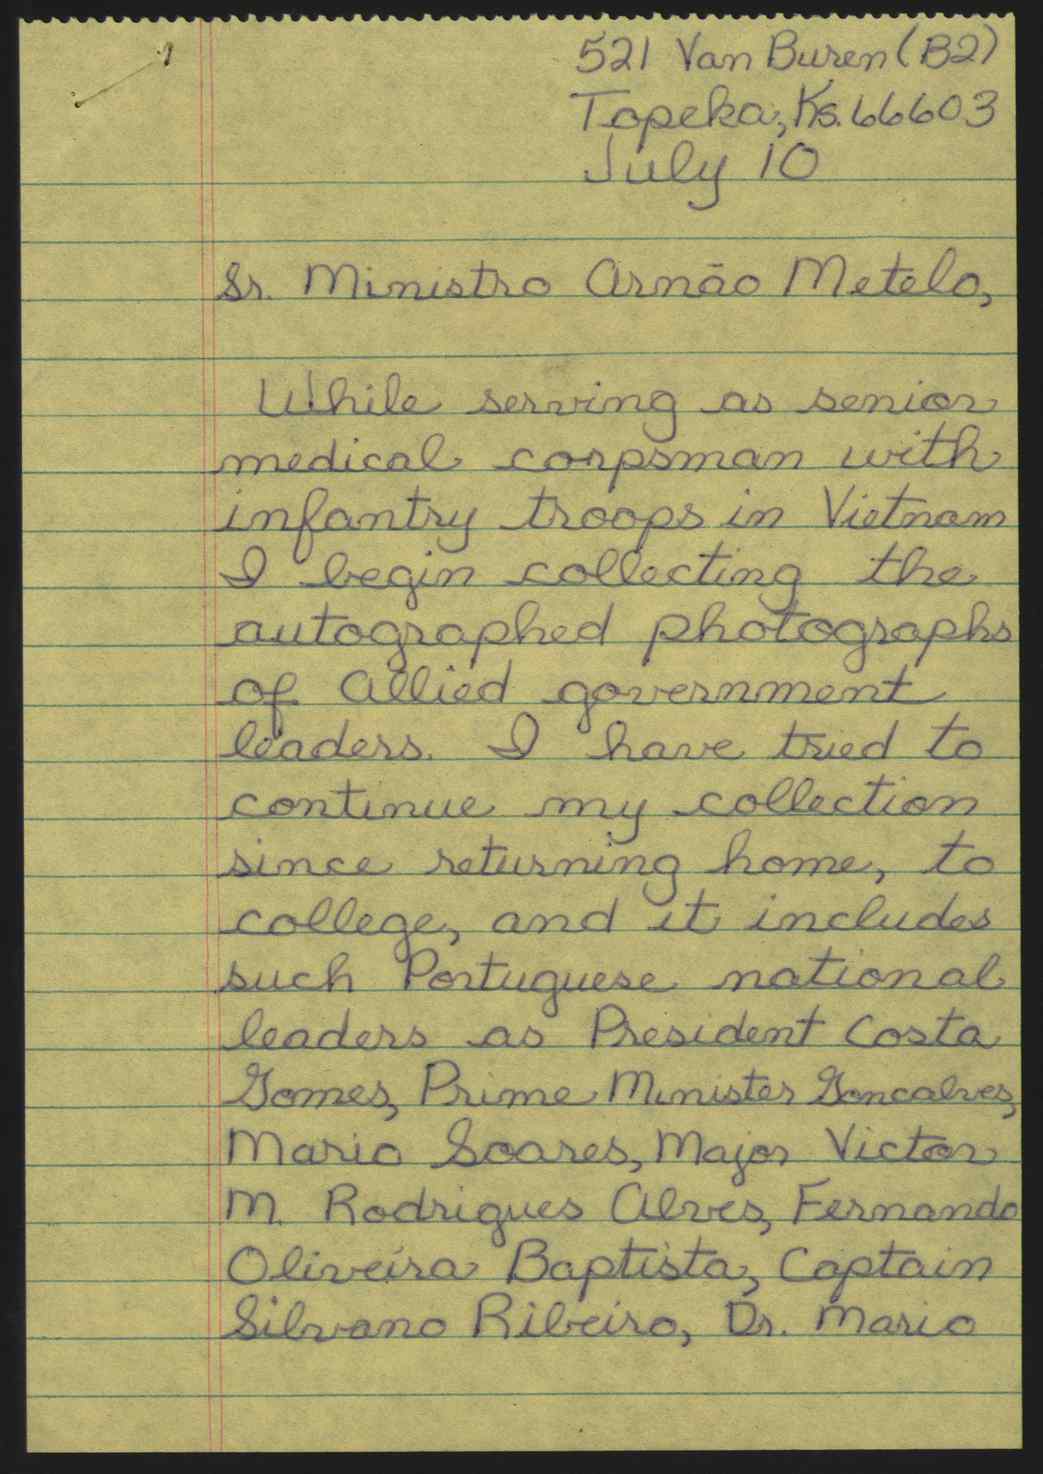 521 Van Buren (B2)
Topeka, Ks. 66603
July 10
Sr. Ministro Arnão Metelo,
While serving as senior
medical corpsman with
infantry troops in Vietnam
I begin collecting the
autographed photographs
of Allied government
leaders. I have tried to
continue my collection
since returning home, to
college, and it includes
such Portuguese national
leaders as President Costa
Gomes, Prime Minister Goncalves,
Mario Soares, Major Victor
M. Rodrigues Alves, Fernando
Oliveira Baptista, Captain
Silvano Ribeiro, Dr. Mario